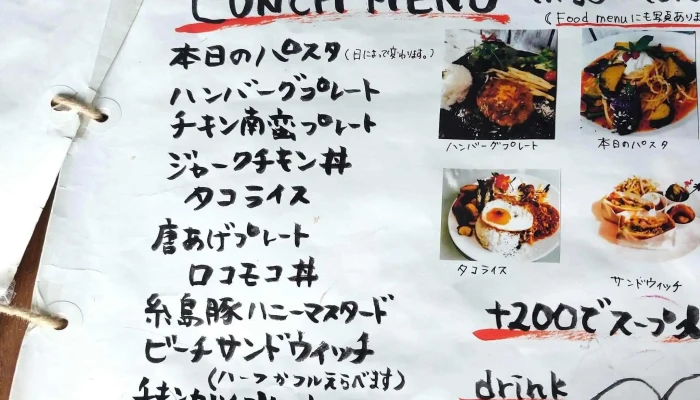 LUNCH MENU
(Food menuにも写真あります
本日のパスタ(日によって変わります。)
ハンバーグプレート
チキン南蛮プレート
ジャークチキン丼
タコライス
唐あげプレート
ロコモコ丼
糸島豚ハニーマスタード
ビーチサンドウィッチ
(ハーフかフルえらべます)
ハンバーグプレート
本日のパスタ
タコライス
サンドウィッチ
+200でスープ
drink